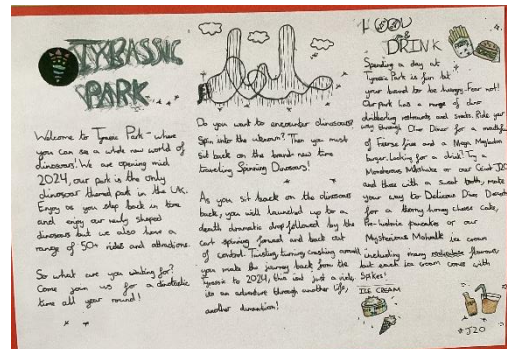 TYRASSIC
PARK
Welcome to Tyrassic Park - where
you can see a whole new world of
dinosaurs! We are opening mid
2024, our park is the only
dinosaur themed park in the UK.
Enjoy as you step back in time
and enjoy our newly shaped
dinosaurs but we also have a
range of 50+ rides and attractions.
So what are you waiting for?
Come join us for a dinotastic
time all year round!
Do you want to encounter dinosaurs?
Spin into the unknown? Then you must
sit back on the brand new time
traveling Spinning Dinosaurs!
As you sit back on the dinosaurs
back, you will launched up to a
death dramatic drop followed by the
cart spinning forward and back out
of control. Twisting, turning, crashing around
you make the journey back from the
Tyrassic to 2024, this isnt just a ride,
its an adventure through another life,
another dimention!
FOOD
&
DRINK
Spending a day at
Tyrassic Park is fun but
your bound to be hungry. Fear not!
Our park has a range of dino
dribbling resturants and snacks. Ride your
way through Dino Diner for a mouthful
of fierce fries and a Mega
burger. Looking for a drink? Try a
Monsterous Milkshake or our Giant J20
and those with a sweet tooth, make
your way to Delicious Dino Deserts
for a honey cheese cake,
Pre-historic pancakes or our
Mysterious ice cream
including many flavours
but each ice cream comes with
Spikes!
ICE CREAM
#J20